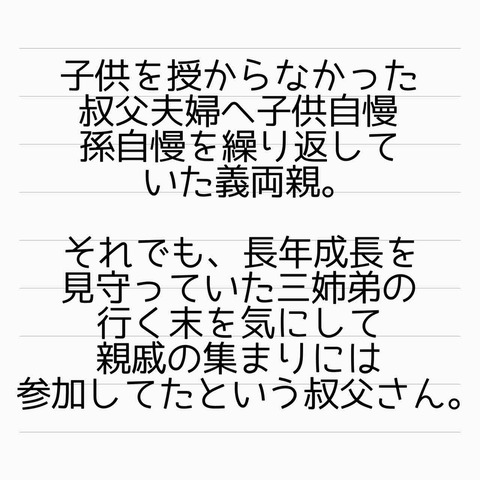 子供を授からなかった
叔父夫婦へ子供自慢
孫自慢を繰り返して
いた義両親。
それでも、長年成長を
見守っていた三姉弟の
行く末を気にして
親戚の集まりには
参加してたという叔父さん。